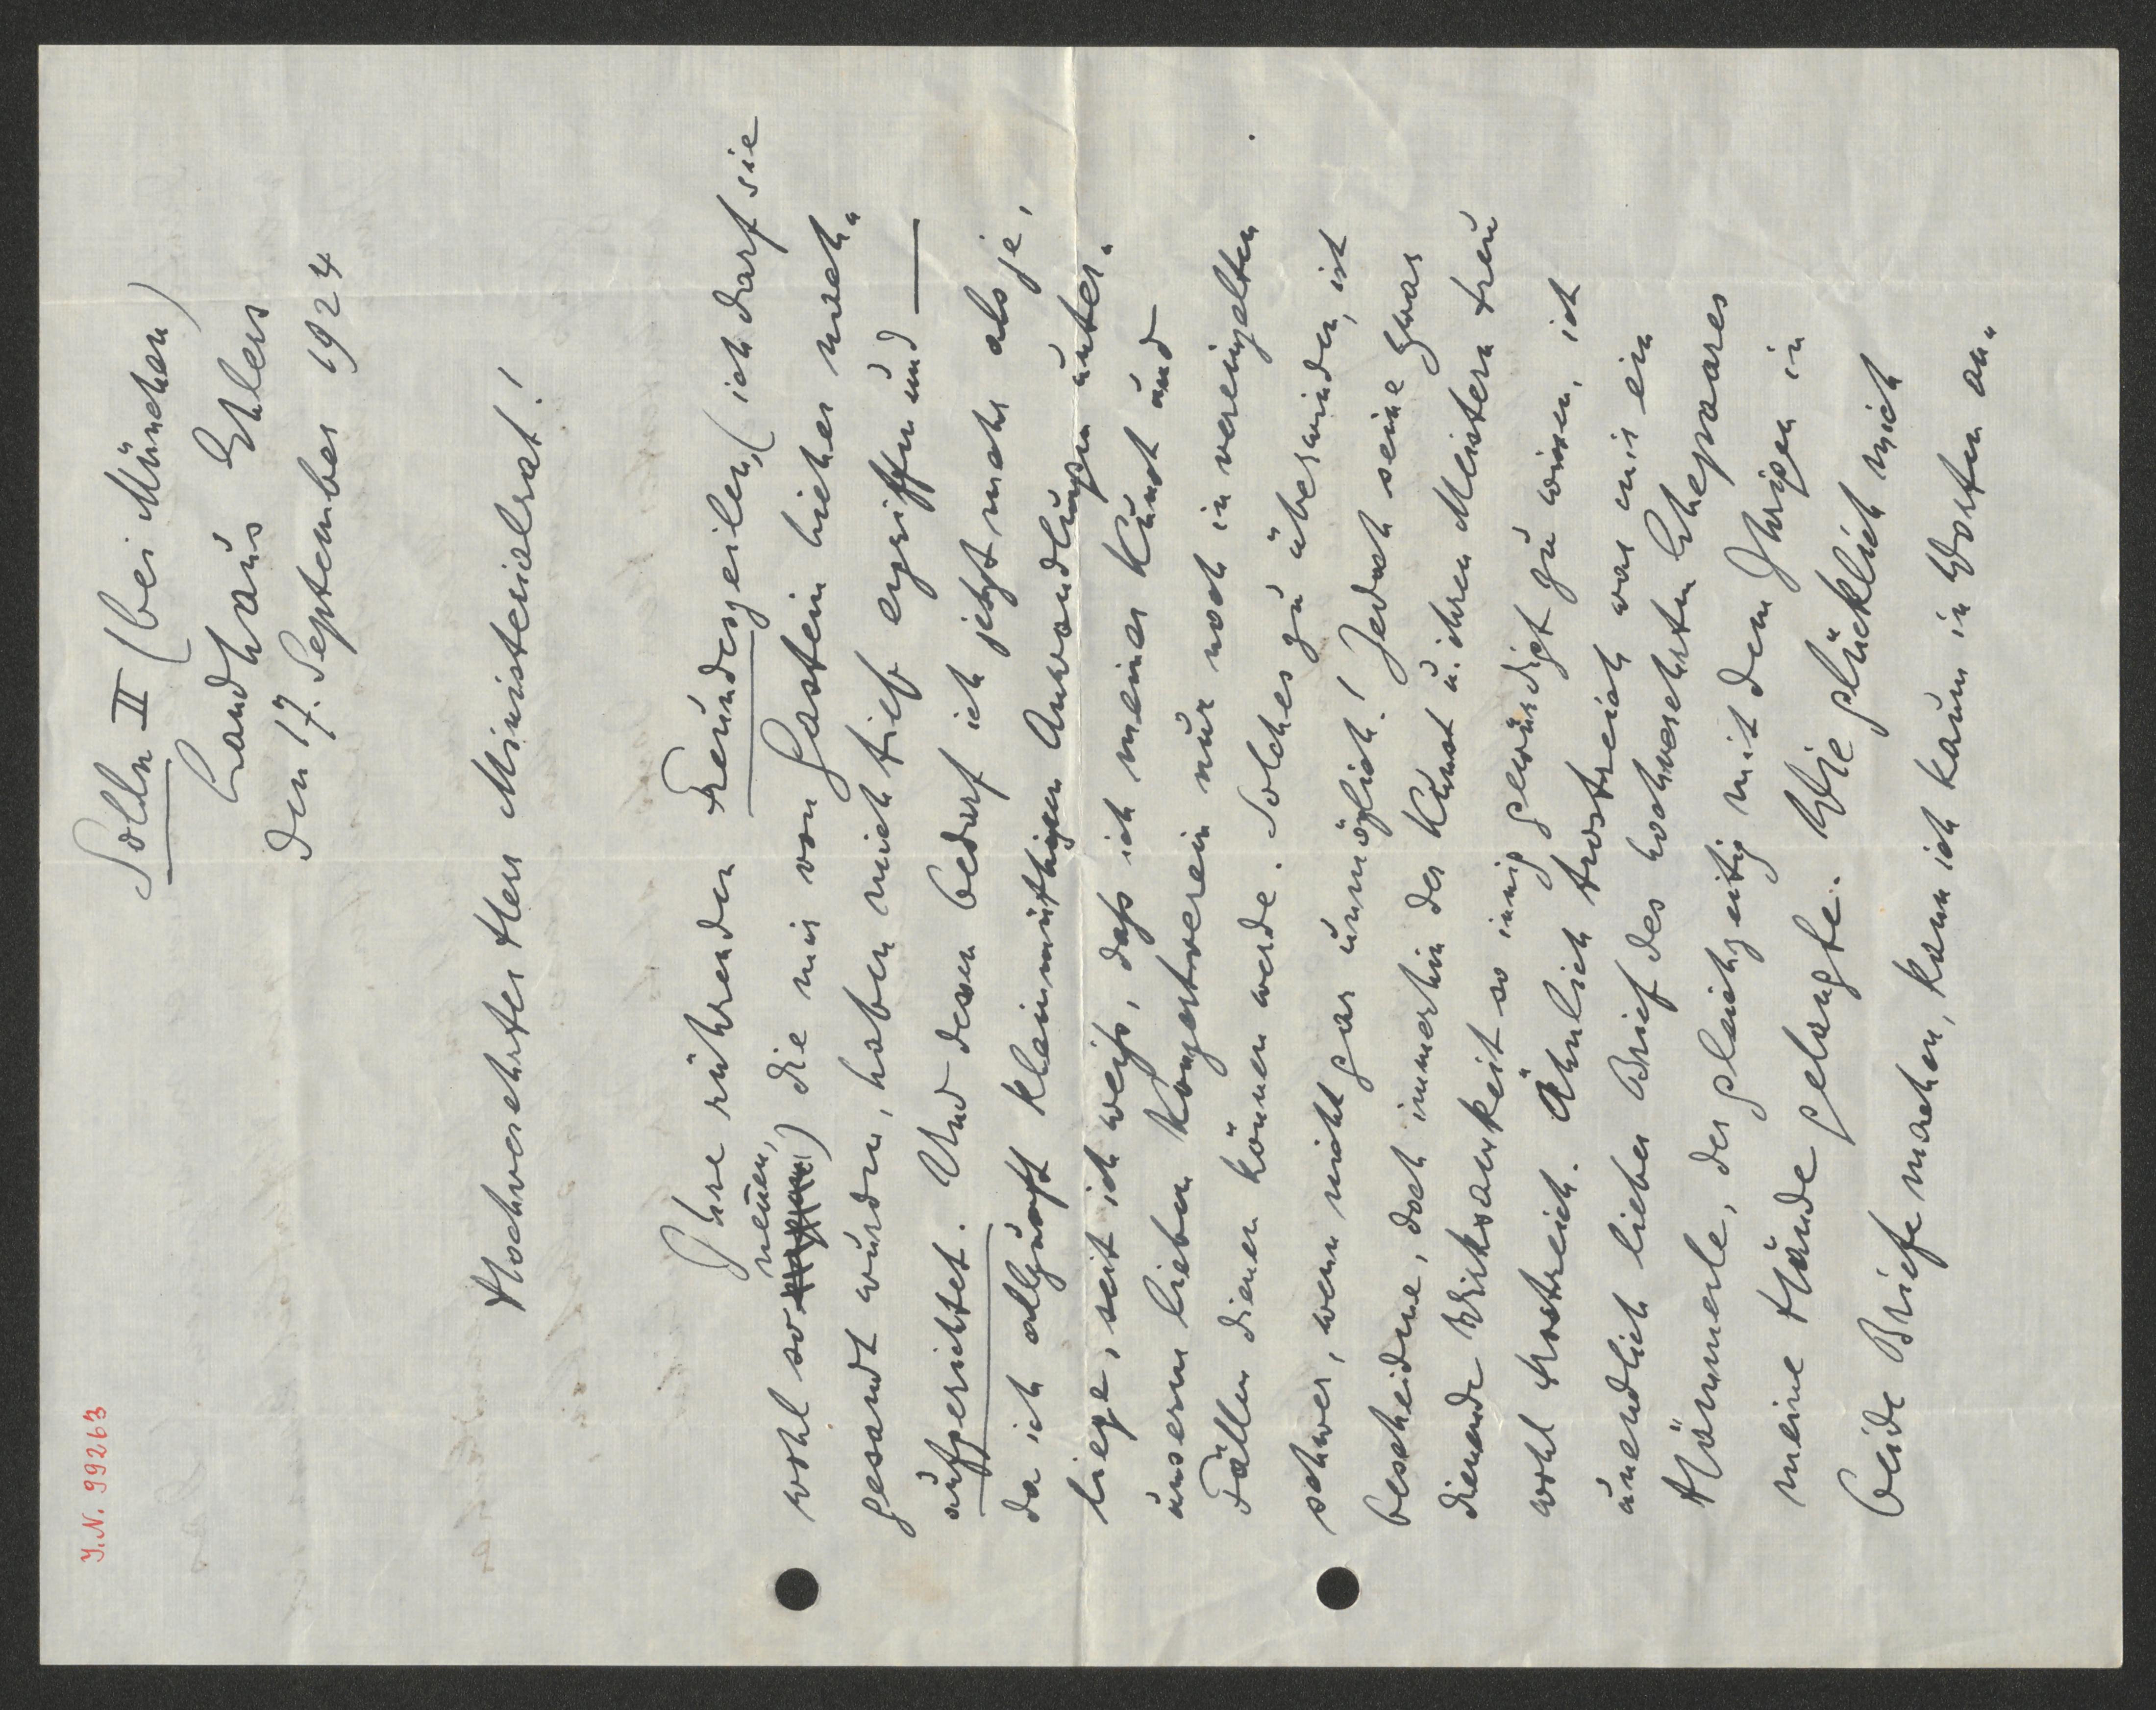 J.N. 99263
Solln II (bei München)
Landhaus Ehlers
den 17. September 1924
Hochverehrter Herr Ministerialrat!
Ihre rührenden Freundeszeilen, (ich darf sie
wohl so nennen,) die mir von Gastein hieher nach„
gesandt wurden, haben mich tief ergriffen und —
aufgerichtet. Und dessen bedarf ich jetzt mehr als je,
da ich allzuoft kleinmüthigen Anwandlungen unter„
liege, seit ich weiß, daß ich meiner Kunst und
unserem lieben Konzertverein nur noch in vereinzelten
Fällen dienen können werde. Solches zu überwinden, ist
schwer, wenn nicht gar unmöglich! Jedoch seine zwar
bescheidene, doch immerhin der Kunst u. ihren Meistern treu
dienende Wirksamkeit so innig gewürdigt zu wissen, ist
wohl trostreich. Ähnlich trostreich war mir ein
unendlich lieber Brief des hochverehrten Ehepaares
Hämmerle, der gleichzeitig mit dem Ihrigen in
meine Hände gelangte. Wie glücklich mich
beide Briefe machen, kann ich kaum in Worten aus„